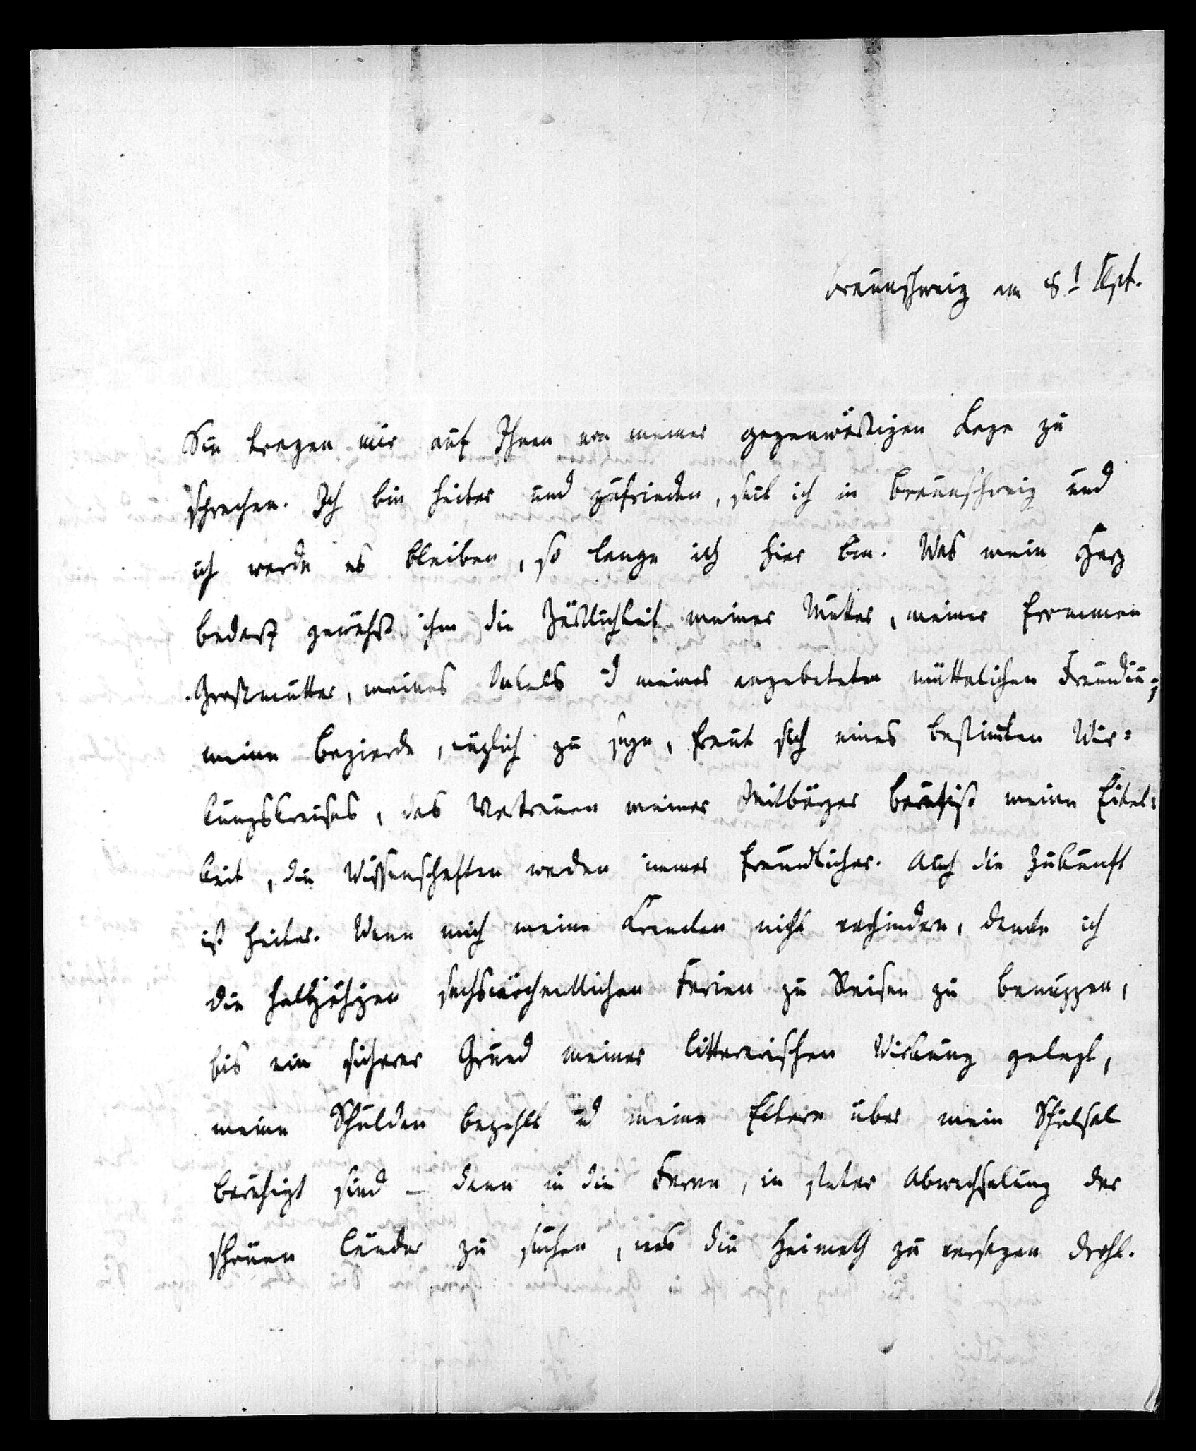 Braunschweig am 8t Sept.
Sie tragen mir auf Ihnen von meiner gegenwärtigen Lage zu
sprechen. Ich bin heiter und zufrieden, seit ich in Braunschweig und
ich werde es bleiben, so lange ich hier bin. Was mein Herz
bedarf gewährt ihm die Zärtlichkeit meiner Mutter, meiner frommen
Grosmutter, meines Onkels ud meiner angebeteten mütterlichen Freundin;
meine Begierde, nüzlich zu seyn, freut sich eines bestimten Wir-
kungskreises, das Vertrauen meiner Mitbürger meine Eitel-
keit, die Wissenschaften werden immer freundlicher. Auch die Zukunft
ist heiter. Wenn mich meine Kranken nicht verhindern, denke ich
die halbjährigen sechswöchentlichen Ferien zu Reisen zu benuzzen,
bis ein sicherer Grund meiner litterarischen Wirkung gelegt,
meine Schulden bezahlt ud meine Eltern über mein Schiksal
beruhigt sind – dann in die Ferne, in steter Abwechselung der
schönen Länder zu suchen, was die Heimath zu versagen droht.